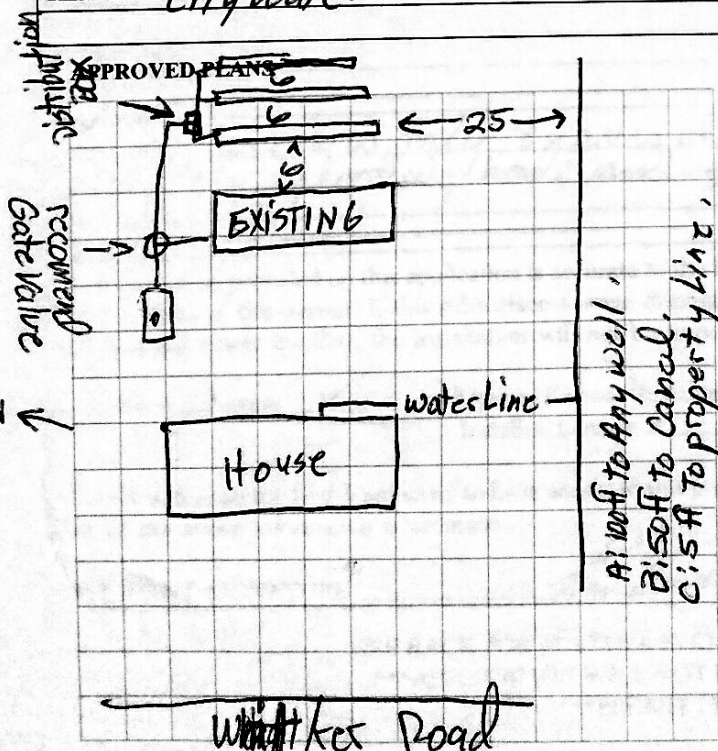 City water
APPROVED PLANS
6
6
25
6
EXISTING
recomend
Gate Valve
waterLine
House
A: 100ft to Any well,
B: 50ft to Canal,
C: 5ft to property Line,
Road